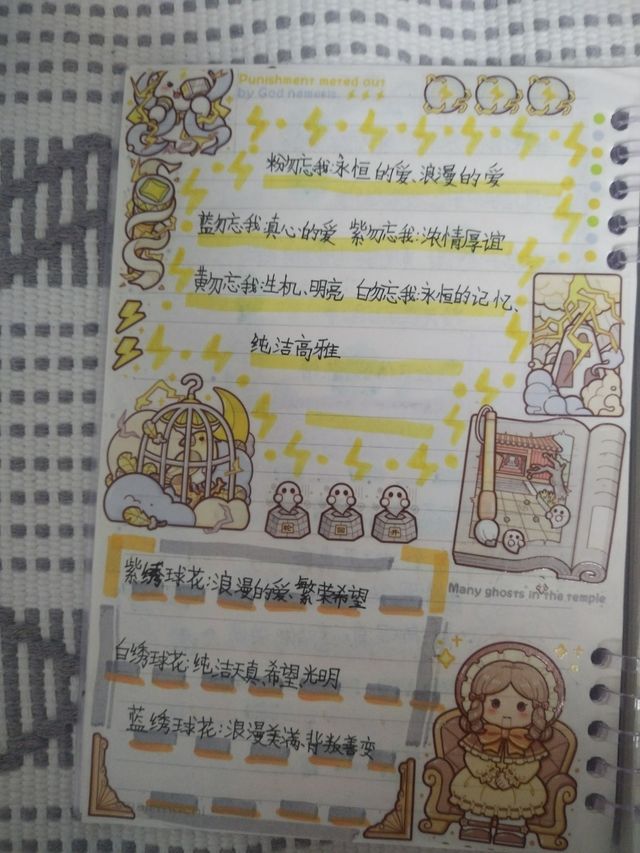 Punishment meted out
by God nemesis.
粉勿忘我:永恒的爱、浪漫的爱
蓝勿忘我:真心的爱 紫勿忘我:浓情厚谊
黄勿忘我:生机、明亮 白勿忘我:永恒的记忆、
纯洁高雅
Many ghosts in the temple
紫绣球花:浪漫的爱、繁荣希望
白绣球花:纯洁天真、希望光明
蓝绣球花:浪漫美满、背叛善变